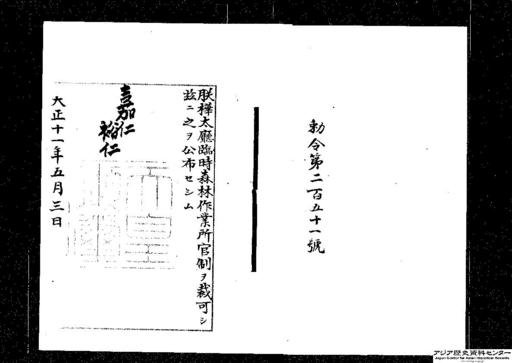 勅令第二百五十一號
朕樺太廳臨時森林作業所官制ヲ裁可シ
玆ニ之ヲ公布セシム
嘉仁
裕仁
大正十一年五月三日
アジア歴史資料センター
Japan Center for Asian Historical Records